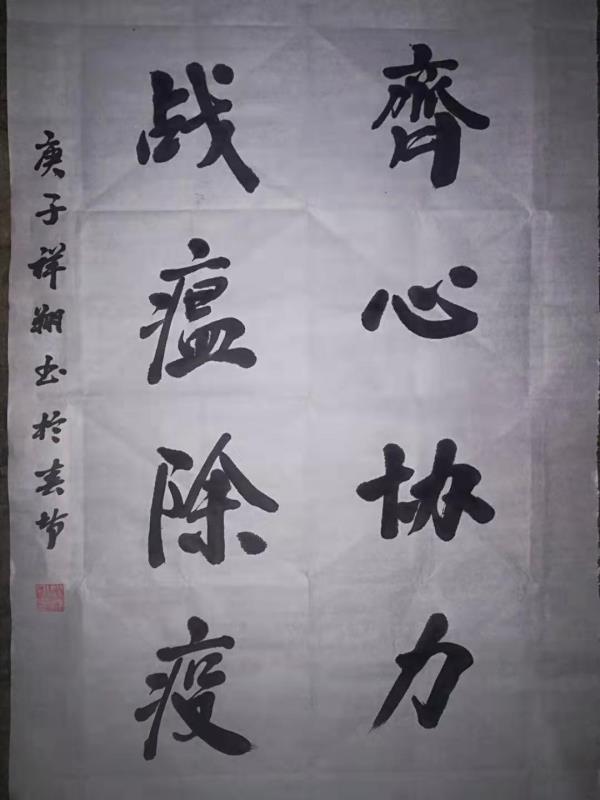 齊心协力
战瘟除疫
庚子祥翔书於春节